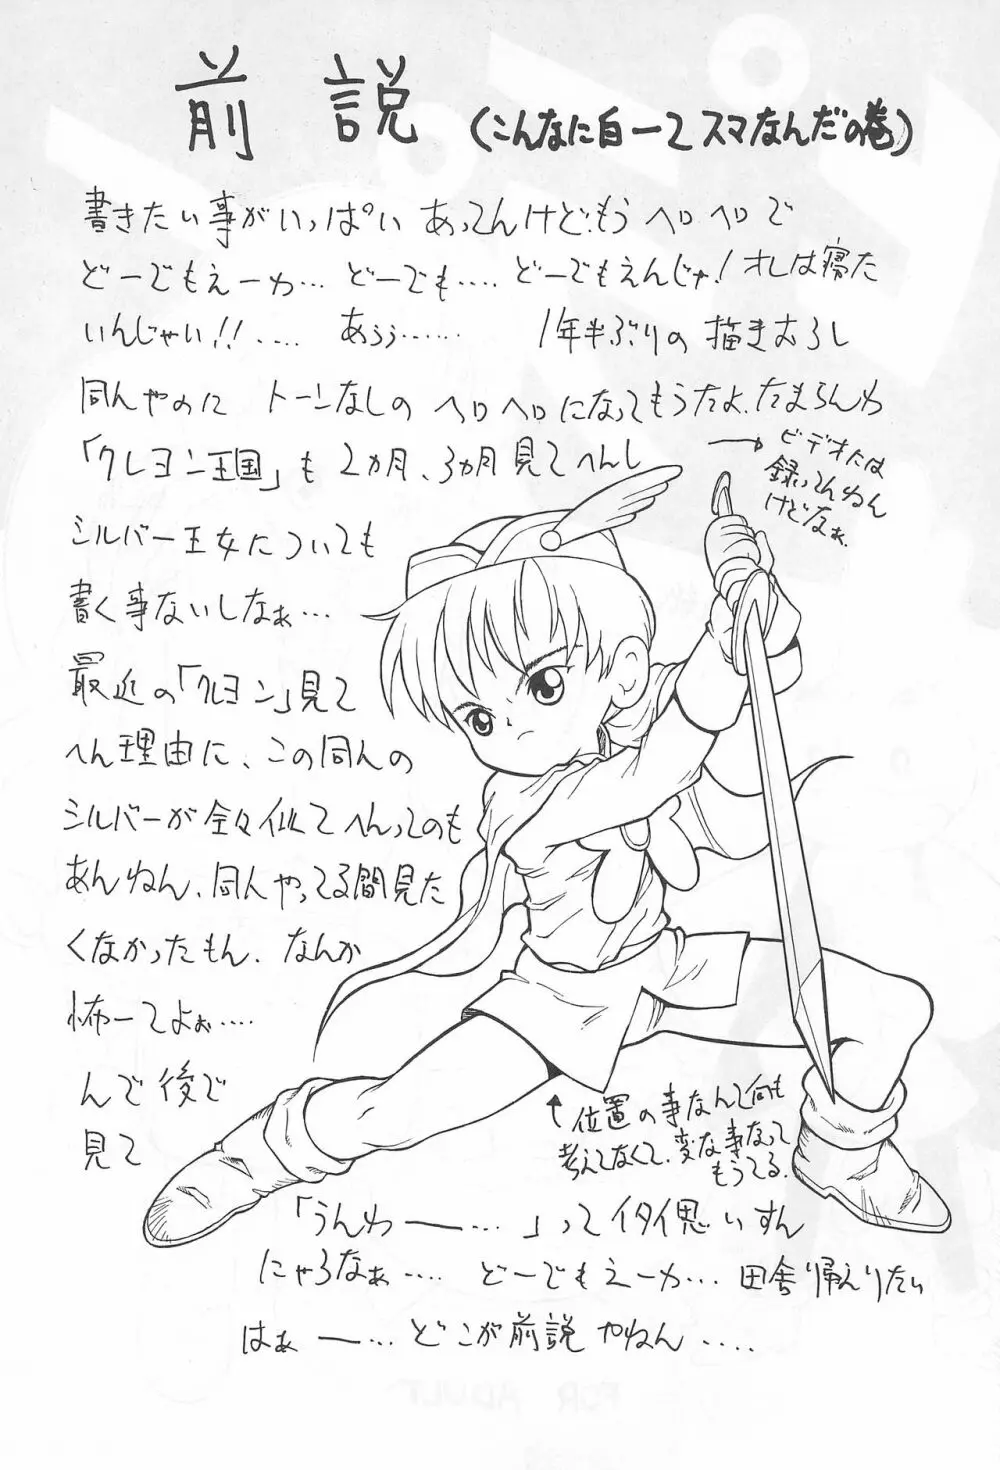 前説 (こんなに白ーてスマなんだの巻)
書きたい事がいっぱい あってんけど、もう ヘロヘロで
どーでもえーわ… どーでも…. どーでもえんじゃ! オレは寝た
いんじゃい!!.... あぅぅ…… 1年半ぶりの描きおろし
同人やのに トーンなしの ヘロヘロになってもうたよ、たまらんわ
「クレヨン王国」も 2ヵ月、3ヵ月見てへんし
→ ビデオには
録ってんねん
けどなぁ.
シルバー王女についても
書く事ないしなぁ…
最近の「クレヨン」見て
へん理由に、この同人の
シルバーが全々似てへんってのも
あんねん、同人やってる間見た
くなかったもん. なんか
怖ーてよぉ….
んで後で
見て
↑位置の事なんて何も
考えてなくて、変な事なって
もうてる.
「うんわーー…」ってイタイ思いすん
にゃろなぁ…. どーでもえーわ… 田舎帰えりたい
はぁー… どこが前説やねん….
FOR ADULT